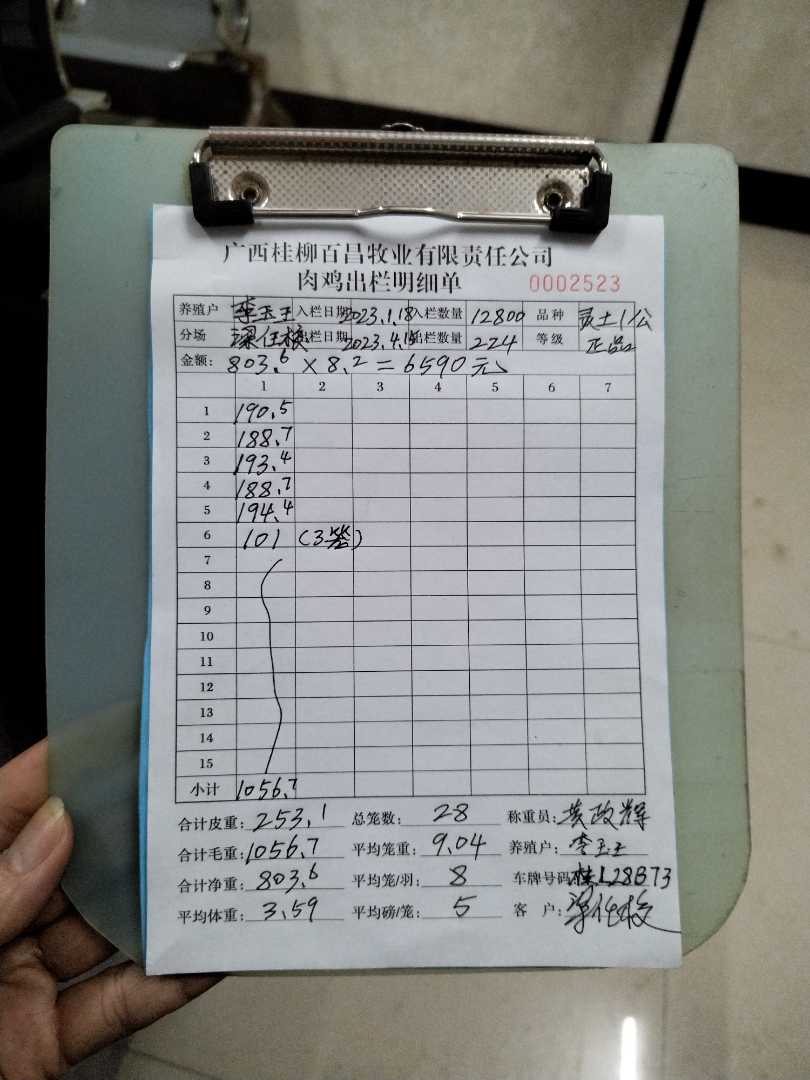 广西桂柳百昌牧业有限责任公司
肉鸡出栏明细单 0002523
养殖户 李玉王 入栏日期 2023.1.18 入栏数量 12800 品种 灵土1/公
分场 出栏日期 2023.4.18 出栏数量 224 等级 正品
金额: 803.6 × 8.2 = 6590元
1 2 3 4 5 6 7
1 190.5
2 188.7
3 193.4
4 188.7
5 194.4
6 101 (3笼)
7
8
9
10
11
12
13
14
15
小计 1056.7
合计皮重: 253.1 总笼数: 28 称重员: 黄政辉
合计毛重: 1056.7 平均笼重: 9.04 养殖户: 李玉王
合计净重: 803.6 平均笼/羽: 8 车牌号码: 桂128B73
平均体重: 3.59 平均磅/笼: 5 客 户: